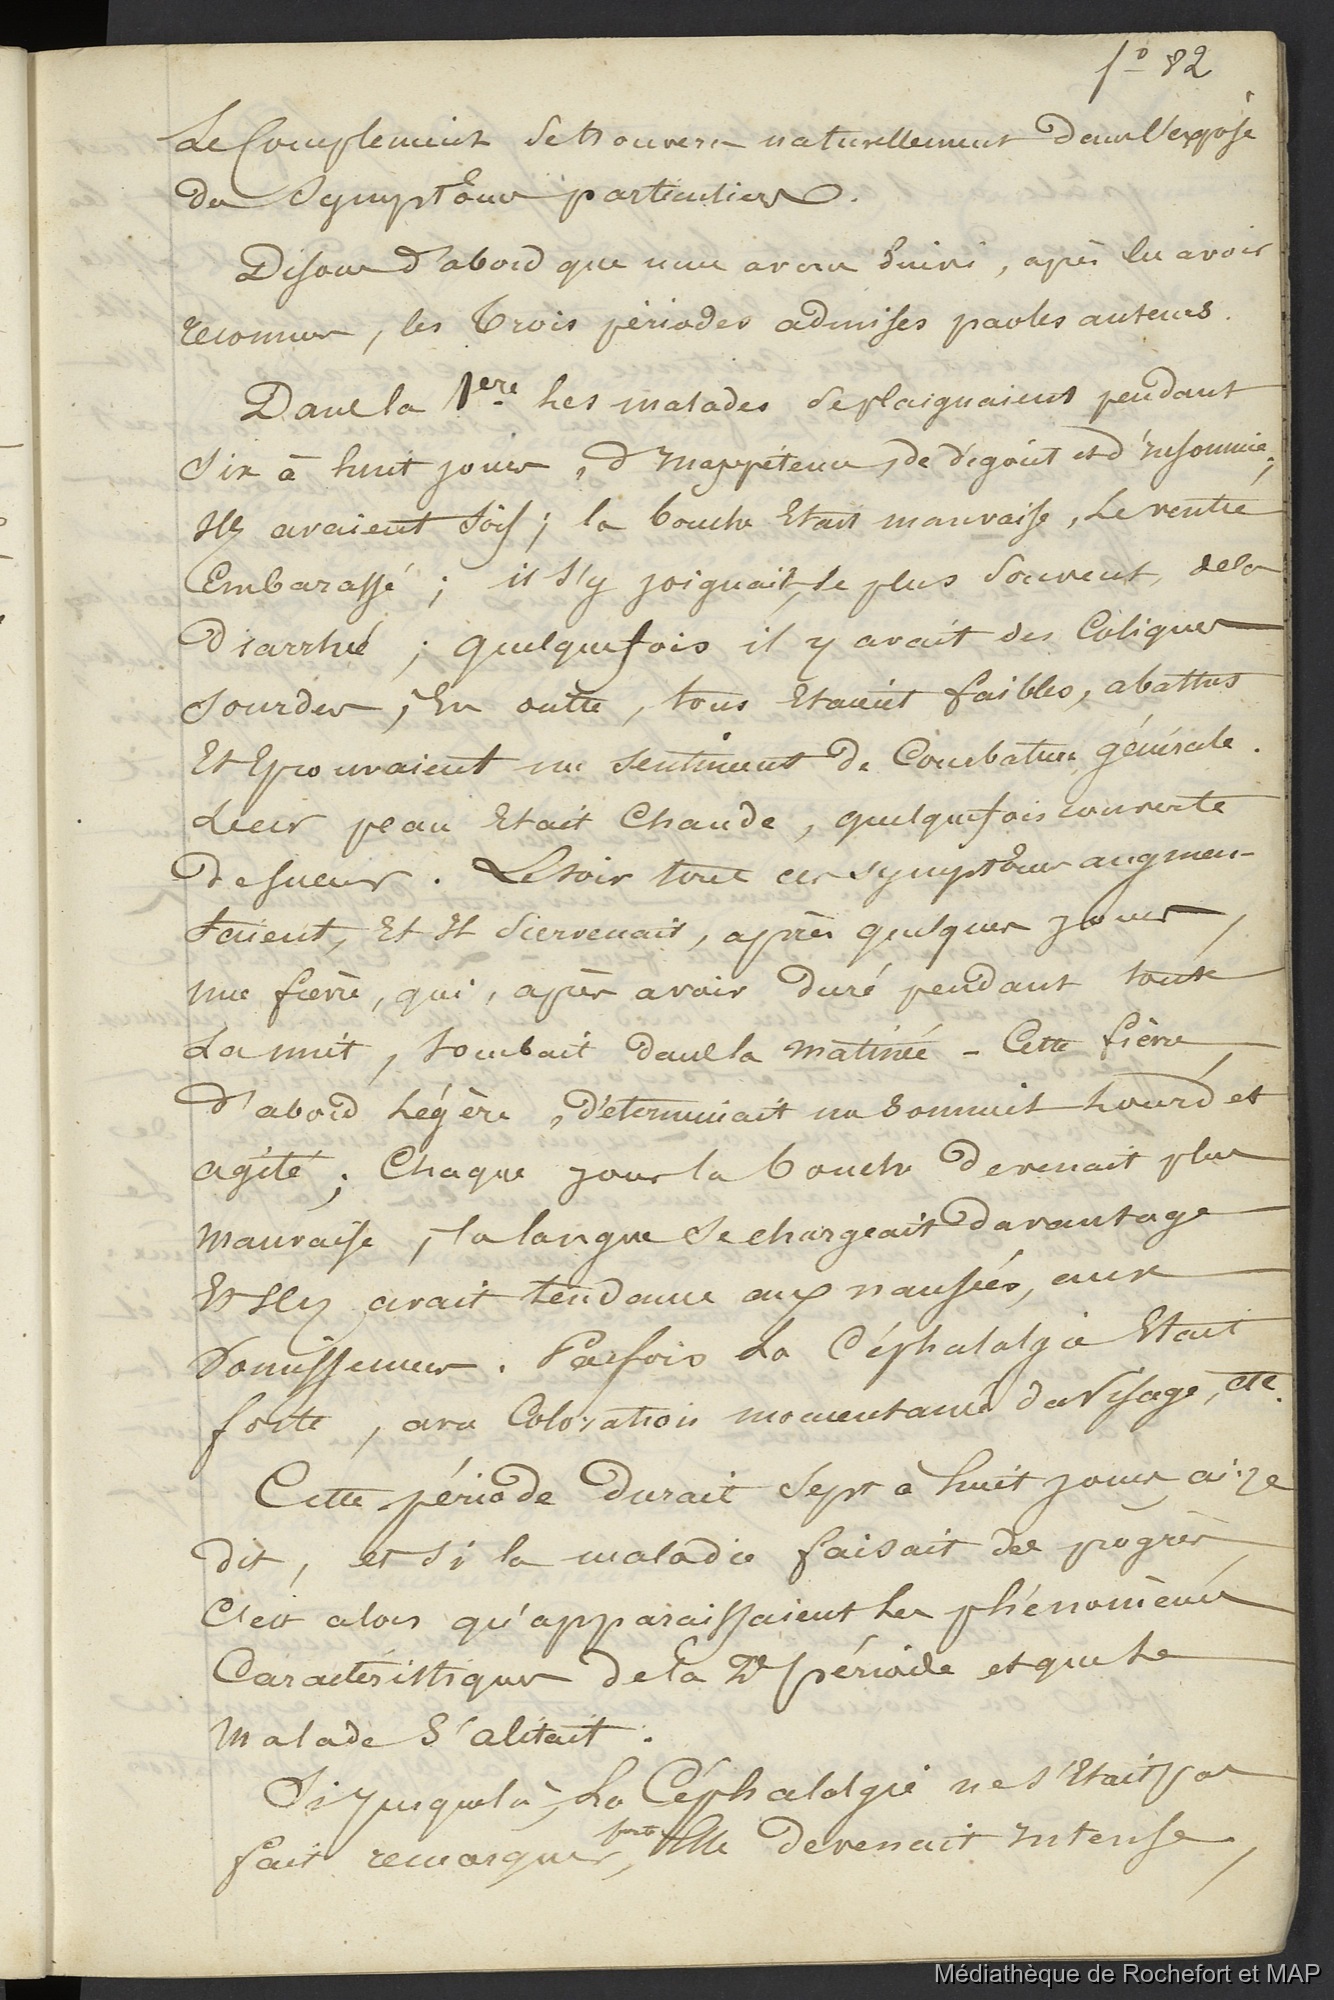 fo 82
Le Complement se trouvera naturellement dans l'exposé
des Symptômes particuliers.
Disons d'abord que nous avons suivi, après les avoir
reconnues, les trois périodes admises par les auteurs.
Dans la 1ere les malades se plaignaient pendant
Six à huit jours, d'Inappétence, de dégoût et d'Insomnie;
Ils avaient soif; la bouche Etait mauvaise, le ventre
Embarassé; il s'y joignait, le plus souvent, de la
diarrhée; quelquefois il y avait des Coliques
sourdes; En outre, tous Etaient faibles, abattus
Et Eprouvaient un sentiment de Courbature générale.
Leur peau Etait Chaude, quelquefois couverte
de sueur. Le soir tous ces symptômes augmen-
taient, Et Il survenait, après quelques jours,
une fièvre, qui, après avoir duré pendant toute
La nuit, tombait dans la matinée - Cette fièvre
d'abord légère, déterminait un sommeil lourd et
agité; Chaque jour la bouche devenait plus
mauvaise, la langue se chargeait davantage
Et Il y avait tendance aux nausées, aux
Vomissemens. Parfois la Céphalalgie Etait
forte, avec Coloration momentanée du Visage, etc.
Cette période durait Sept à huit jours ai-je
dit, et si la maladie faisait des progrès,
C'est alors qu'apparaissaient les phénomènes
Caractéristiques de la 2e période et que le
malade s'alitait.
Si jusque là, la Céphalalgie ne s'Etait pas
fait remarquer, forte Elle devenait Intense,
Médiathèque de Rochefort et MAP